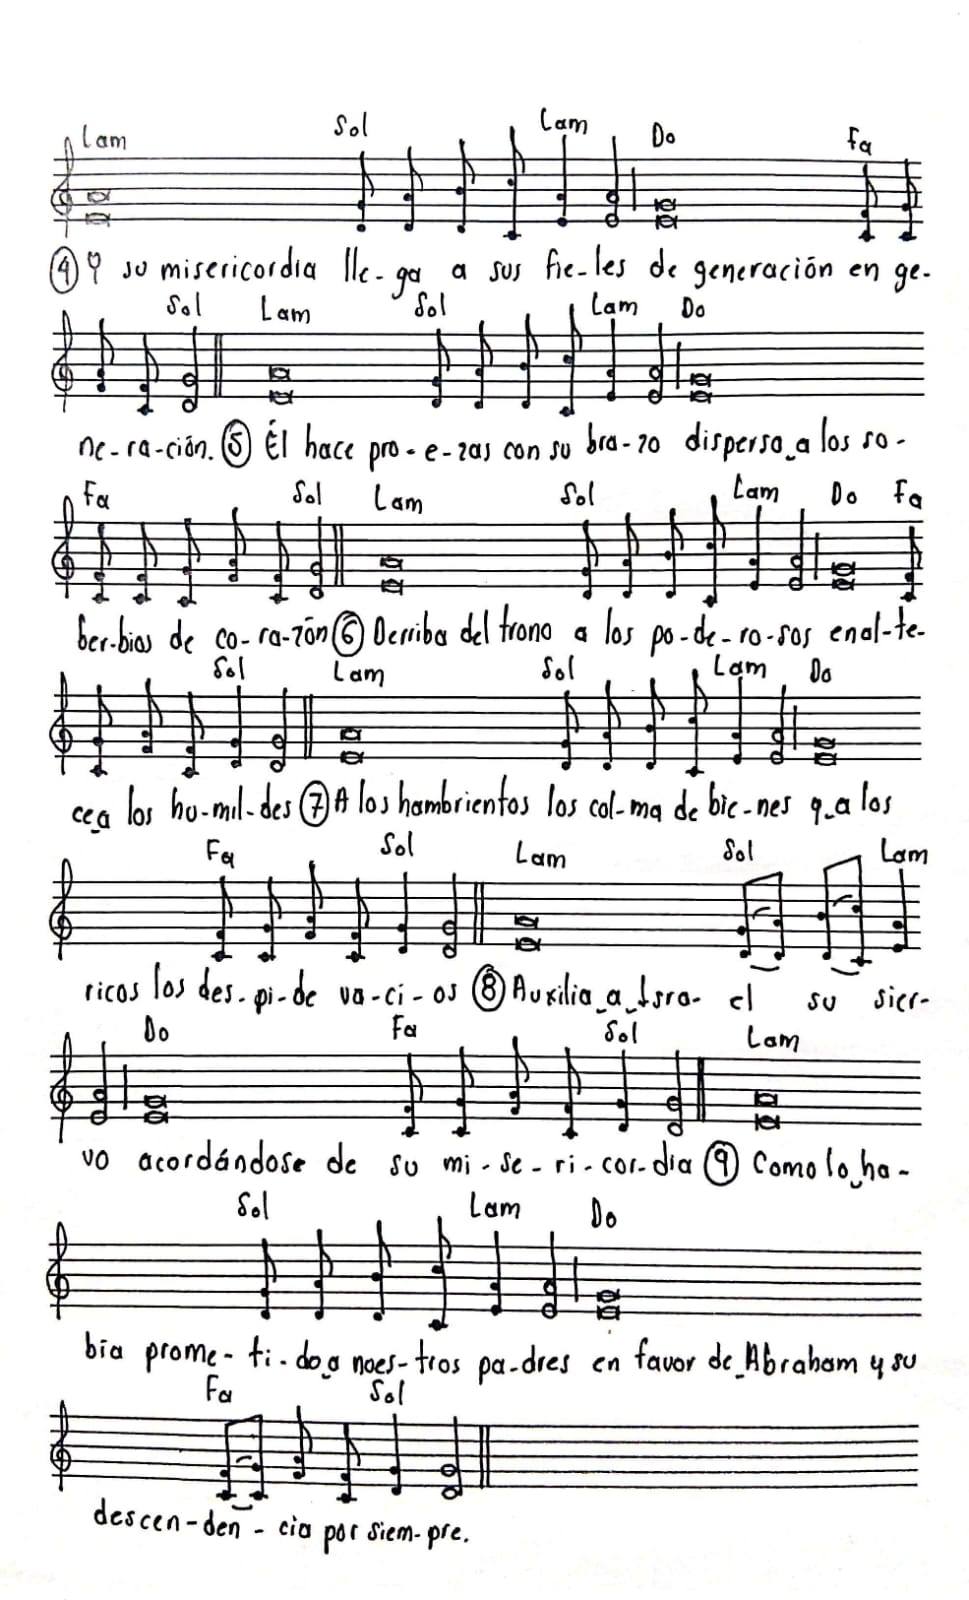 Lam Sol Lam Do Fa
④ Y su misericordia lle-ga a sus fie-les de generación en ge-
Sol Lam Sol Lam Do
ne-ra-ción. ⑤ Él hace pro-e-zas con su bra-zo dispersa_a los so-
Fa Sol Lam Sol Lam Do Fa
ber-bios de co-ra-zón ⑥ Derriba del trono a los po-de-ro-sos enal-te-
Sol Lam Sol Lam Do
ce_a los hu-mil-des ⑦ A los hambrientos los col-ma de bie-nes y_a los
Fa Sol Lam Sol Lam
ricos los des-pi-de va-ci-os ⑧ Auxilia_a_Isra-el su sier-
Do Fa Sol Lam
vo acordándose de su mi-se-ri-cor-dia ⑨ Como lo_ha-
Sol Lam Do
bía prome-ti-do_a nues-tros pa-dres en favor de_Abraham y su
Fa Sol
descen-den-cia por siem-pre.